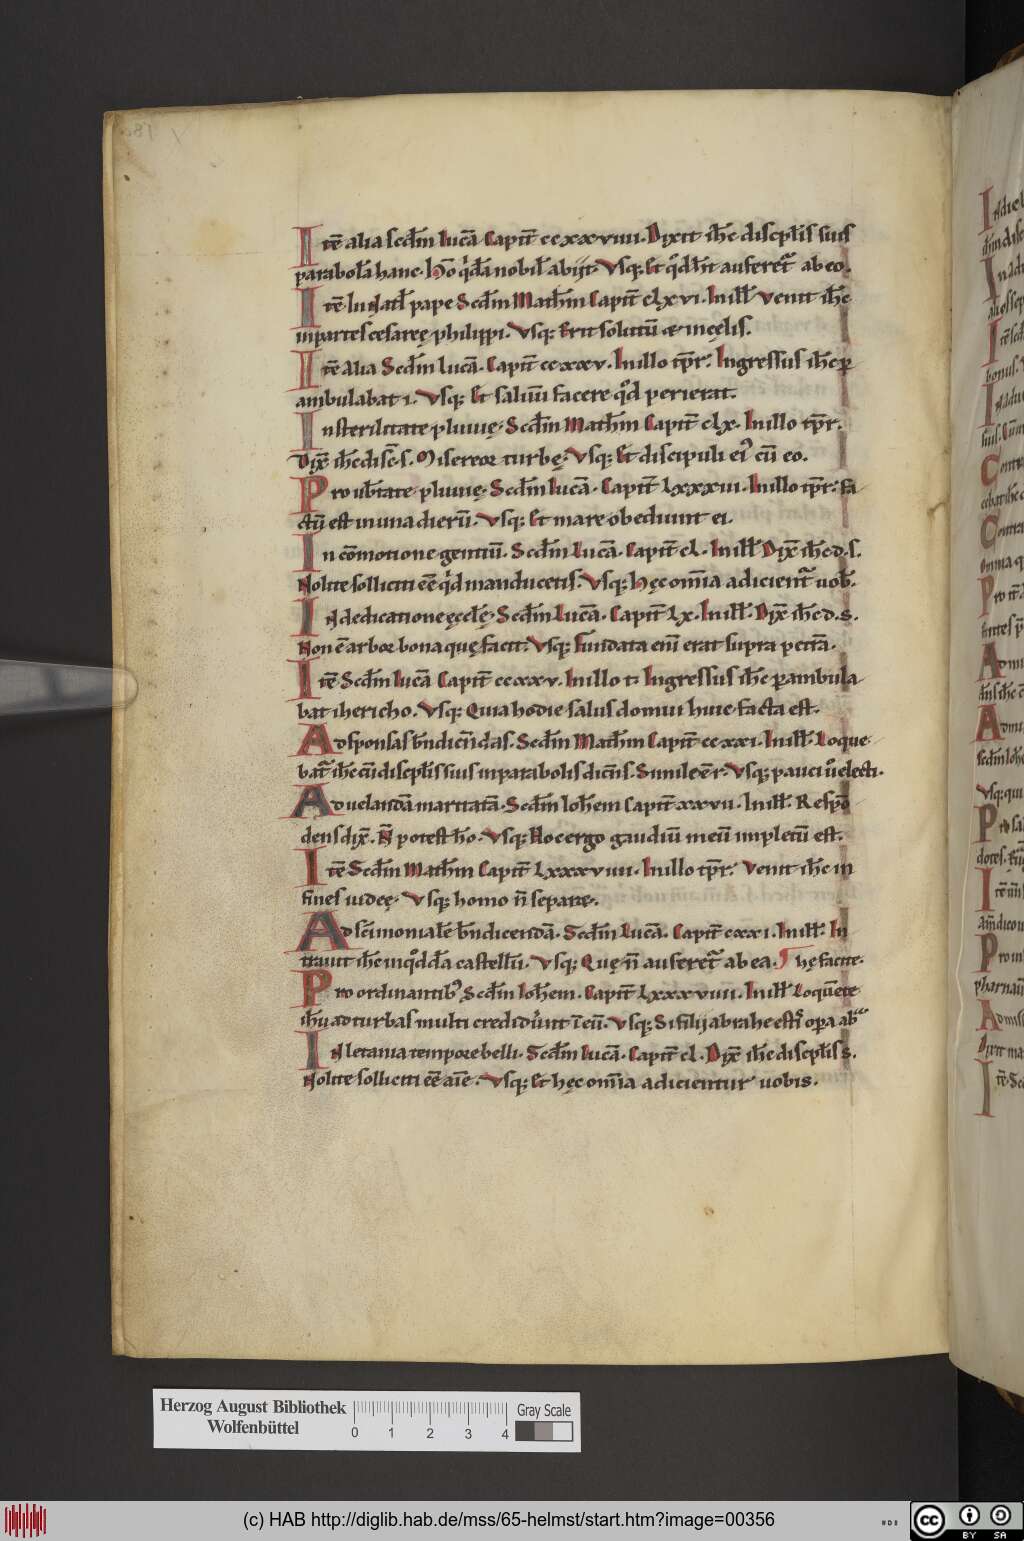 Itē alia scd̄m lucā Capit̄ ccxxviiii. Dixit ih̄c discipl̄is suis
parabolā hanc. Hō q̇dā nobil̄ abijt. Vsq; Et q̊d h̄t auferet̄ ab eo.
Itē In Nat̄l pape Scd̄m Math̄m Capit̄ clxvi. In ill̄ Venit ih̄c
in partes cesareę philippi. Vsq; Erit solutū & in cęlis.
Itē Alia Scd̄m lucā. Capit̄ ccxxv. In illo tp̄r. Ingressus ih̄c p
ambulabat i. Vsq; Et saluū facere q̊d perierat.
In sterilitate pluuię. Scd̄m Math̄m Capit̄ clx. In illo tp̄r.
Dix̄ ih̄c disc̄. s. Misereor turbę. Vsq; Et discipuli ei' cū eo.
Pro ub̄tate pluuię. Scd̄m lucā. Capit̄ lxxxiii. In illo tp̄r. fa
ctū est in una dierū. Vsq; Et mare obediunt ei.
In cōmotione gentiū. Scd̄m Lucā. Capit̄ cl. In ill̄ Dix̄ ih̄c d. s.
Nolite solliciti eē q̇d manducetis. Vsq; Hęc om̄ia adicient̄ uob̄.
IN dedicatione ęccl̄ę. Scd̄m Lucā. Capit̄ lx. In ill̄. Dix̄ ih̄c d. s.
Non ē arbor bona quę facit. Vsq; fundata enī erat supra petrā.
Itē Scd̄m lucā Capit̄ ccxxv. In illo t; Ingressus ih̄c pambula
bat ihericho. Vsq; Quia hodie salus domui huic facta est.
Ad sponsas bn̄dicn̄das. Scd̄m Math̄m Capit̄ ccxxi. In ill̄. Loque
bat̄ ih̄c cū discipl̄is suis in parabolis dicn̄s. Simile ē r. Vsq; pauci ū electi.
Ad uelandā maritatā. Scd̄m Ioh̄em Capit̄ xxvii. In ill̄. Respō
dens dix̄. N̄ potest hō. Vsq; Hoc ergo gaudiū meū impletū est.
Itē Scd̄m Math̄m Capit̄ lxxxviiii. In illo tp̄r. Venit ih̄c in
fines iudeę. Vsq; homo n̄ separe.
Ad sc̄imonialē bn̄dicendā. Scd̄m Lucā. Capit̄ cxxi. In ill̄. In
trauit ih̄c in q̊ddā castellū. Vsq; Quę n̄ auferet̄ ab ea. hę facite.
Pro ordinantib' Scd̄m Ioh̄em. Capit̄ lxxxviiii. In ill̄ Loquēte
ih̄u ad turbas multi crediderunt ī eū. Vsq; Si filij abrahe estis opa ab
IN letania tempore belli. Scd̄m Lucā. Capit̄ cl. Dix̄ ih̄c discipl̄is s.
Nolite solliciti eē aīe. Vsq; Et hęc om̄ia adicientur uobis.
Herzog August Bibliothek
Wolfenbüttel
0 1 2 3 4
Gray Scale
(c) HAB http://diglib.hab.de/mss/65-helmst/start.htm?image=00356
cc BY SA